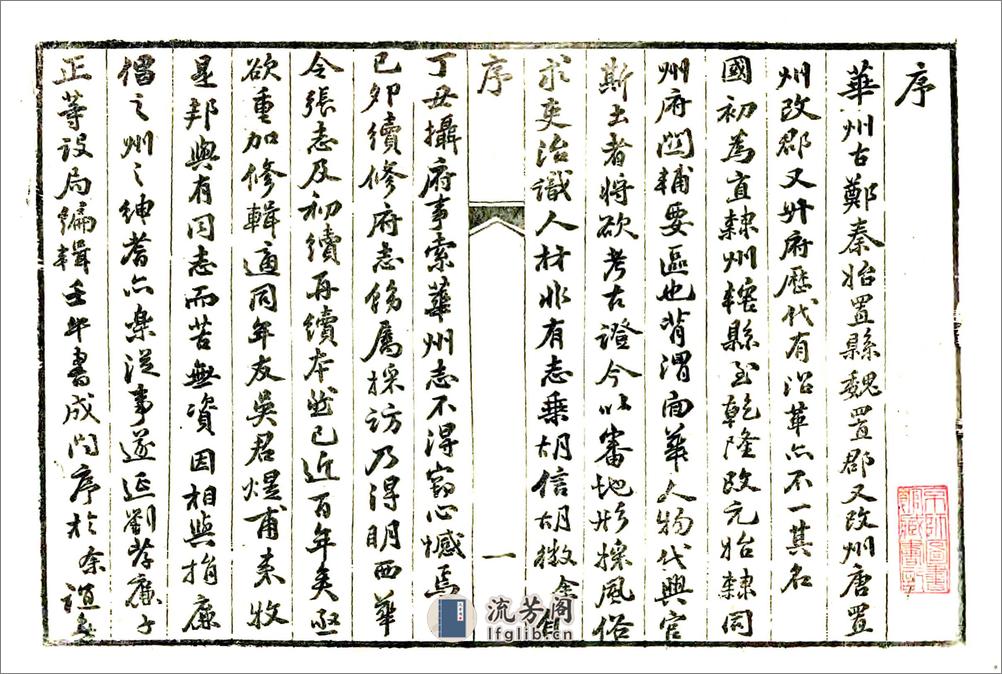 序
華州古鄭秦始置縣魏置郡又改州唐置
州改郡又升府歷代有沿革亦不一其名
國初為直隸州轄縣至乾隆改元始隸同
州府關輔要區也背渭面華人物代興官
斯土者將欲考古證今以審地形採風俗
求吏治識人材非有志乘胡信胡徵余
序
一
丁丑攝府事索華州志不得竊心憾焉
己卯續修府志飭屬採訪乃得明西華
令張志及初續再續本然已近百年矣亟
欲重加修輯適同年友吳君煜甫來牧
是邦與有同志而苦無資因相與捐廉
倡之州之紳耆亦樂從事遂延劉孝廉子
正等設局編輯壬午書成問序於余誼
京師圖書
館藏書
流芳阁
lfglib.cn